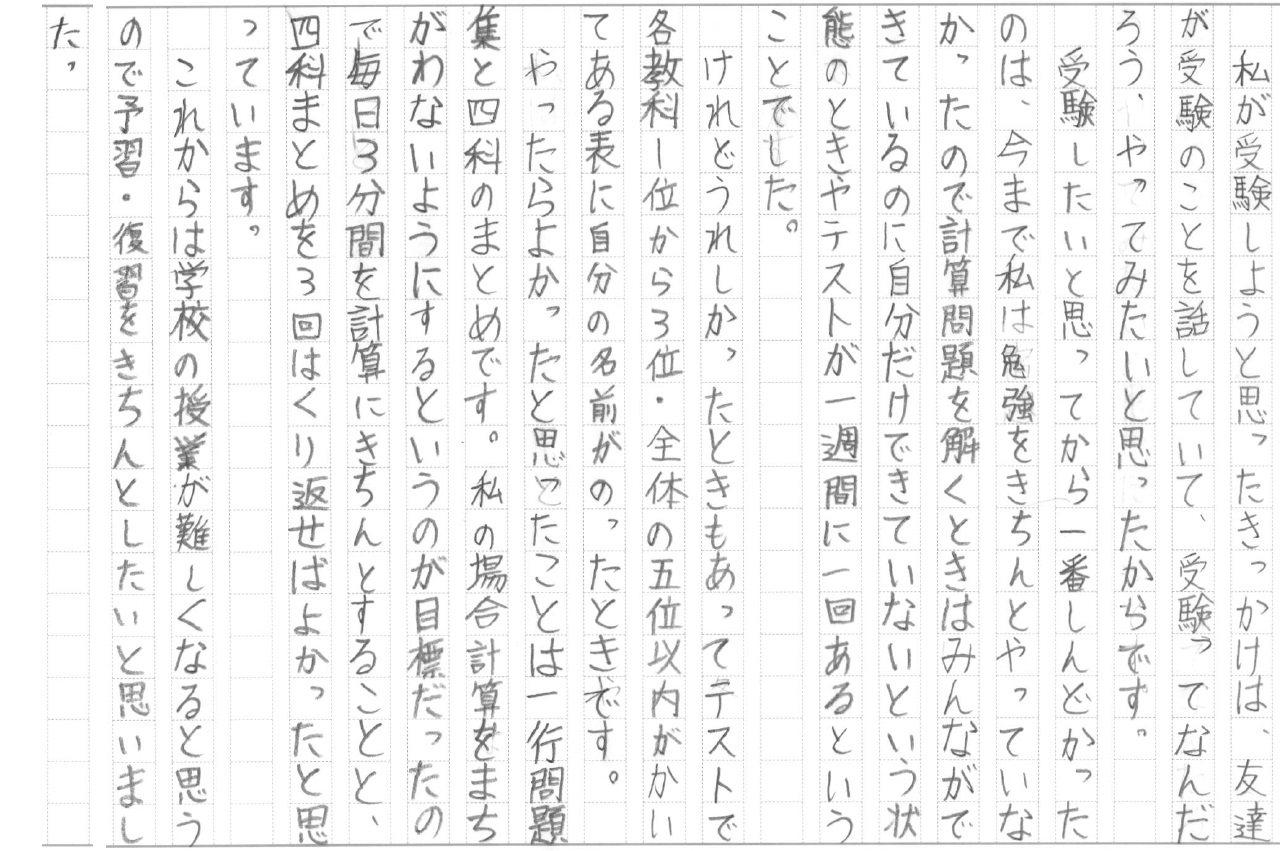 私が受験しようと思ったきっかけは、友達
が受験のことを話していて、受験ってなんだ
ろう、やってみたいと思ったからです。
受験したいと思ってから一番しんどかった
のは、今まで私は勉強をきちんとやっていな
かったので計算問題を解くときはみんながで
きているのに自分だけできていないという状
態のときやテストが一週間に一回あるという
ことでした。
けれどうれしかったときもあってテストで
各教科1位から3位・全体の五位以内がかい
てある表に自分の名前がのったときです。
やったらよかったと思ったことは一行問題
集と四科のまとめです。私の場合計算をまち
がわないようにするというのが目標だったの
で毎日3分間を計算にきちんとすることと、
四科まとめを3回はくり返せばよかったと思
っています。
これからは学校の授業が難しくなると思う
ので予習・復習をきちんとしたいと思いまし
た。